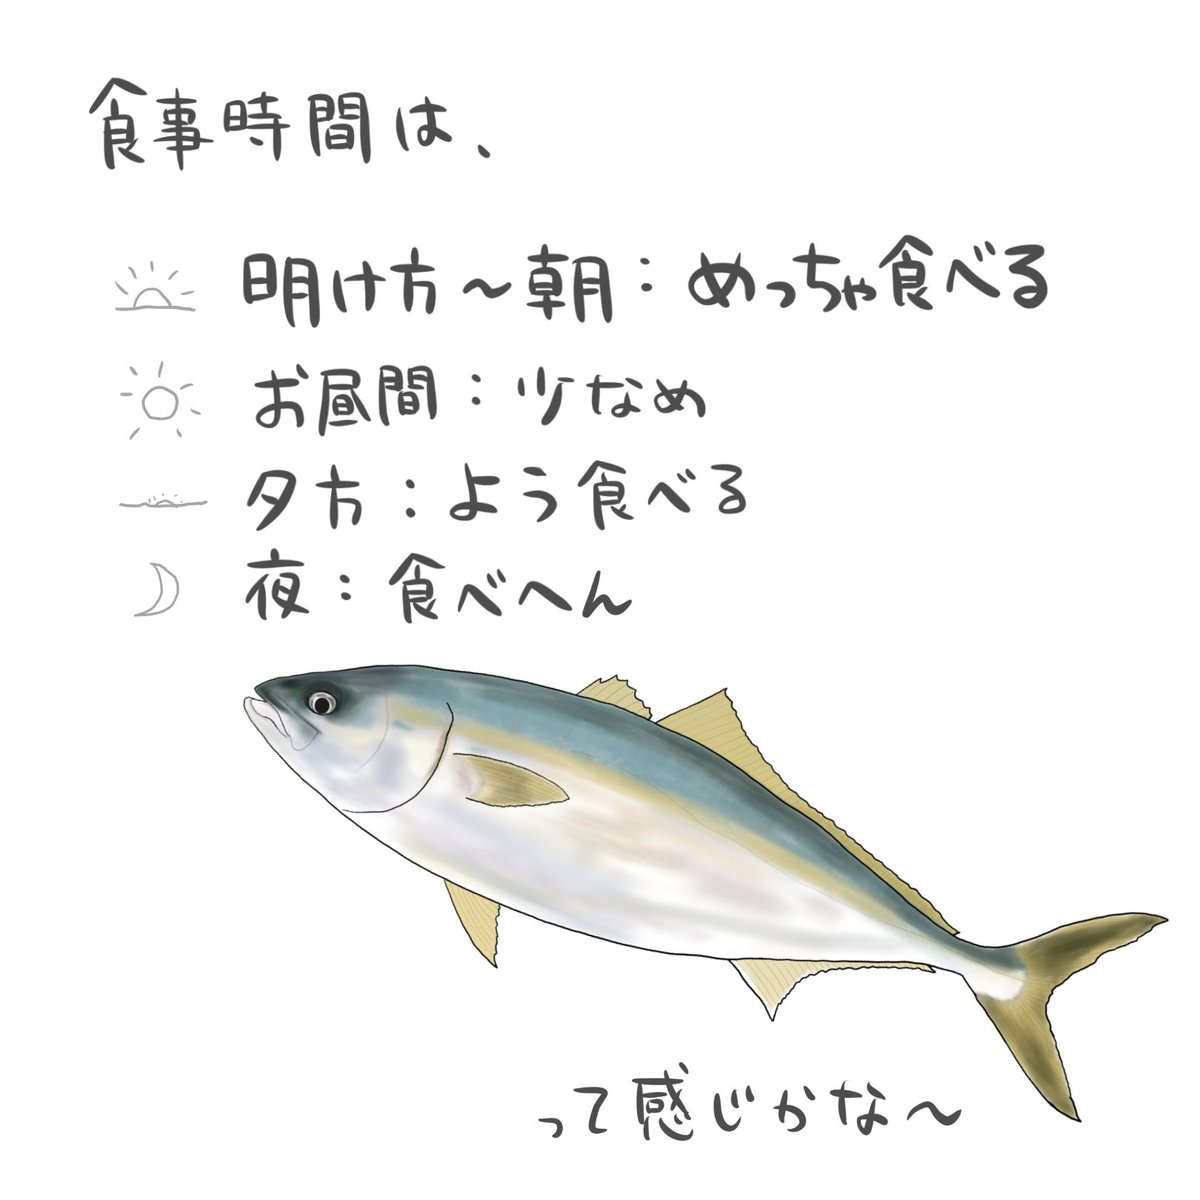 食事時間は、
明け方～朝：めっちゃ食べる
お昼間：少なめ
夕方：よう食べる
夜：食べへん
って感じかな～